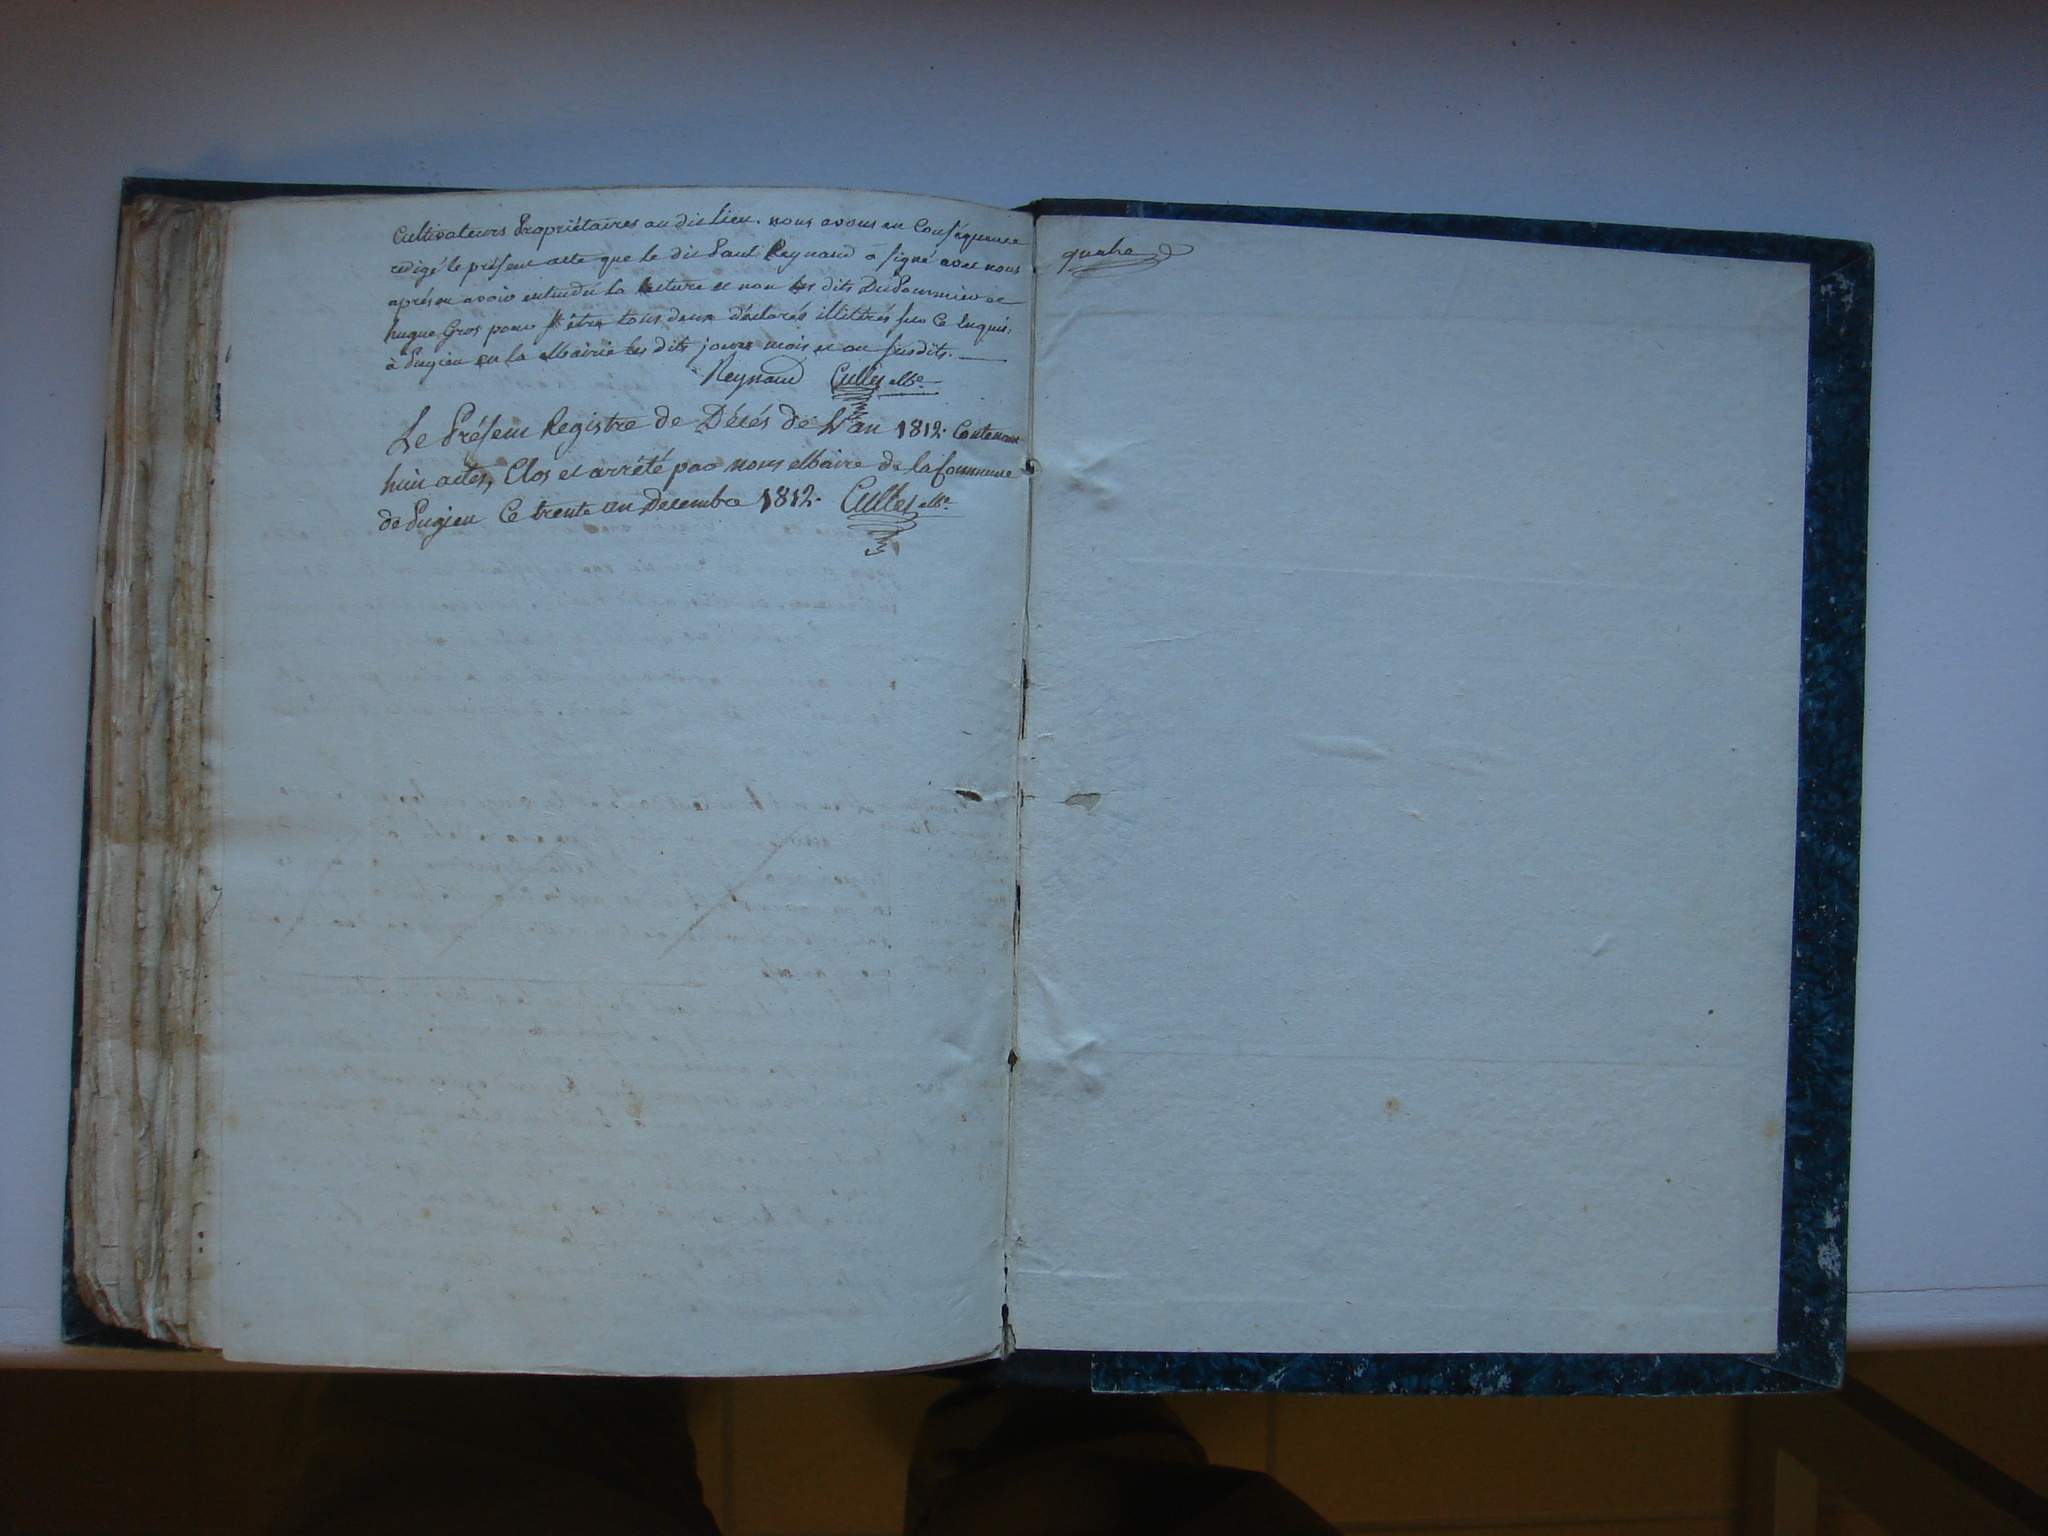 Cultivateurs Propriétaires au dit lieu. nous avons en Conséquence
redigé le présent acte que le dit Paul Reynaud a signé avec nous
après en avoir entendu la lecture et non les dits
hugue Gros pour être tous deux déclarés illitérés sur ce
à Pugieu en la Mairie les dits jours mois et an susdits.
Reynaud Cullet Me.
Le Présent Registre de Décés de L'an 1812. Contenant
huit actes, Clos et arrêté par nous Maire de la Commune
de Pugieu Ce trente un Decembre 1812. Cullet Me.
quatre